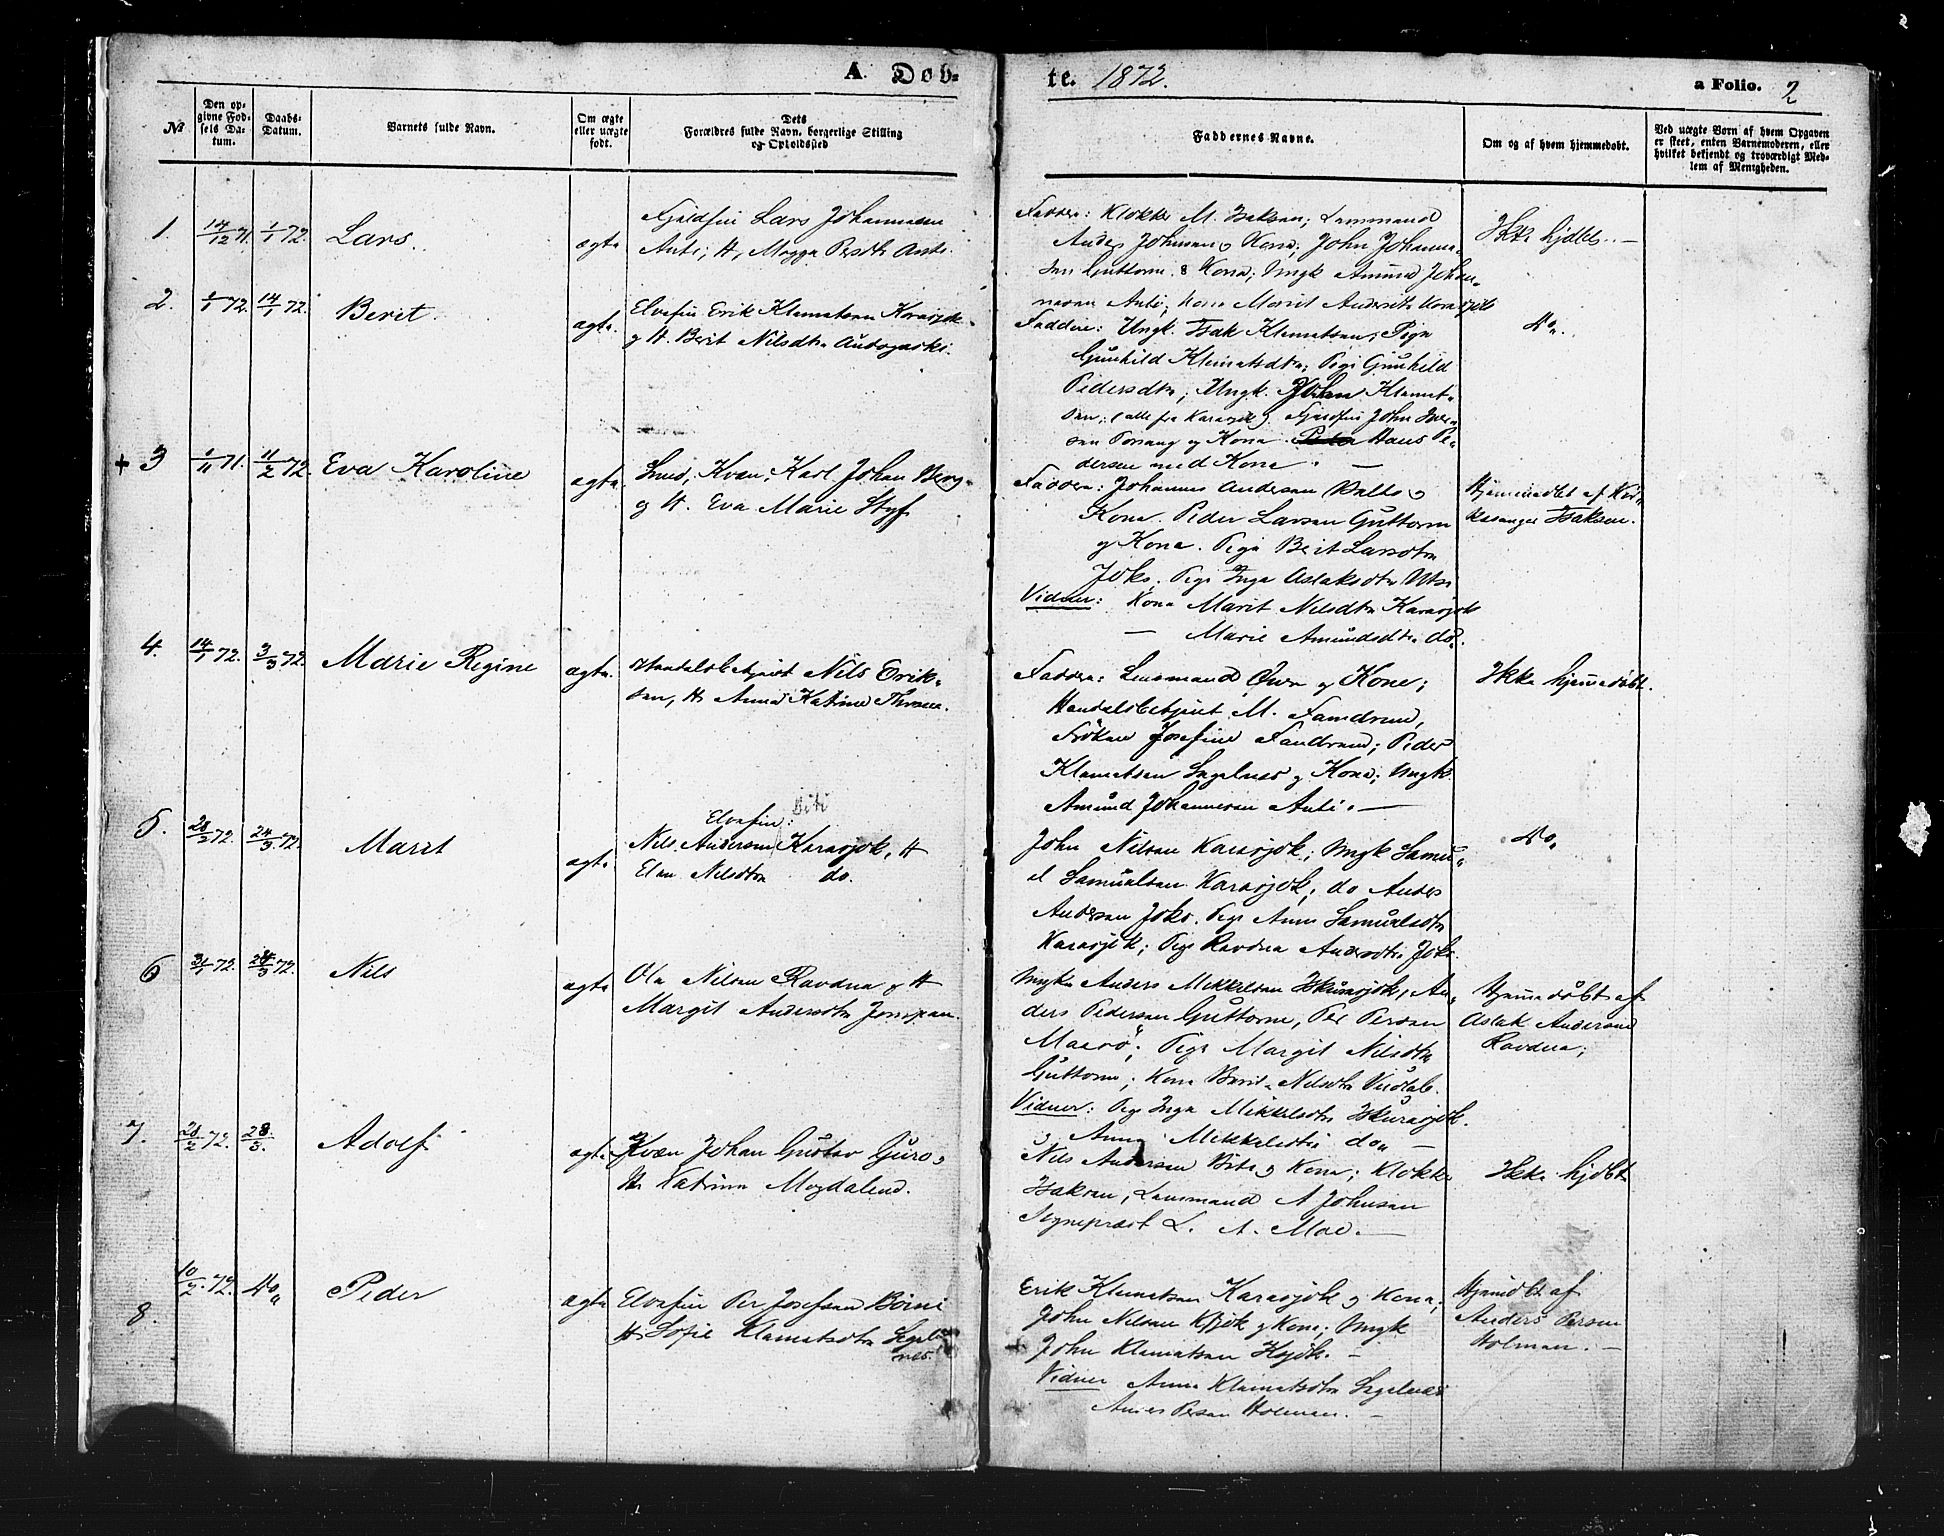 A. Døb-
te. 1872.
a Folio. 2
No
Den op-
givne Fød-
sels Da-
tum.
Daabs-
Datum.
Barnets fulde Navn.
Om ægte
eller uægte
født.
Dets
Forældres fulde Navn, borgerlige Stilling
og Opholdssted
Faddernes Navne.
Om og af hvem hjemmedøbt.
Ved uægte Børn af hvem Opgaven
er skeet, enten Barnemoderen, eller
hvilket bekjendt og troværdigt Med-
lem af Menigheden.
1. 14/12 71. 1/1 72. Lars.
ægte
Fjeldfin Lars Johannesen
Anti, H. Magga Persdtr Anti.
Faddere: Klokker M. Isaksen; Lensmand
Anders Johnsen & Kone; John Johanne-
sen Guttorm & Kone; Ungk Amund Johan-
nesen Anti; Kone Marit Andersdtr Karasjok
Ikke hjdbt. —
2. 1/1 72. 14/1 72. Berit.
ægte.
Elvefin Erik Klemetsen Karasjok
og H. Berit Nilsdtr
Faddere: Ungk. Isak Klemetsen; Pige
Gunhild Klemetsdtr; Pige Gunhild
Pedersdtr; Ungk. Johan Klemet-
sen; (alle fra Karasjok). Fjeldfin John Iver-
sen Porsang og Kone. Hans Pe-
dersen med Kone. —
do.
+ 3 1/11 71. 11/2 72. Eva Karoline
ægte.
Smed, Kvæn, Karl Johan Berg
og H. Eva Marie Styf
Faddere: Johannes Andersen Balto &
Kone. Peder Larsen Guttorm
og Kone. Pige Berit Larsdtr
Joks. Pige Inga Aslaksdtr Utsi
Vidner: Kone Marit Nilsdtr Karasjok
— Marie Amundsdtr do.
Hjemmedøbt af Kir-
kesanger Isaksen.
4. 14/1 72. 3/3 72. Marie Regine
ægte.
Handelsbetjent Nils Erik-
sen, H. Anna Katrine Thrane.
Faddere: Lensmand og Kone;
Handelsbetjent M. Fandrem,
Frøken Josefine Fandrem; Peder
Klemetsen Segelnes og Kone; Ungk.
Amund Johannesen Anti. —
Ikke hjemmedøbt.
5. 28/2 72. 24/3 72. Marit
ægte
Elvefin: Biti
Nils Andersen Karasjok, H
Elen Nilsdtr do.
John Nilsen Karasjok; Ungk Samu-
el Samuelsen Karasjok; do Anders
Andersen Joks. Pige Anne Samuelsdtr
Karasjok; Pige Ravdna Andersdtr Joks.
do.
6 31/1 72. 28/3 72. Nils
ægte
Ole Nilsen Ravdna & H
Margit Andersdtr
Ungk Anders Mikkelsen Iskurasjok, An-
ders Pedersen Guttorm, Per Persen
Pige Margit Nilsdtr
Guttorm; Kone Berit Nilsdtr
Vidner: Pige Inga Mikkelsdtr Iskurasjok.
& Anna Mikkelsdtr do. —
Hjemmedøbt af
Aslak Andersen
Ravdna;
7. 28/2 72. 28/3. Adolf
ægte
Kvæn Johan Gustav Guro &
H. Katrina Magdalena.
Nils Andersen Biti & Kone; Klokker
Isaksen, Lensmand A Johnsen
Sognepræst L. A. Moe. —
Ikke hjdbt
8. 10/2 72. do. Peder
ægte
Elvefin Per Josefsen Boini
H. Sofie Klemetsdtr Segel-
nes.
Erik Klemetsen Karasjok og Kone;
John Nilsen Kjok og Kone; Ungk
John Klemetsen Kjok. —
Vidner Anna Klemetsdtr Segelnes
Anders Persen Holman. —
Hjemdbt af
Anders Persen
Holman. —